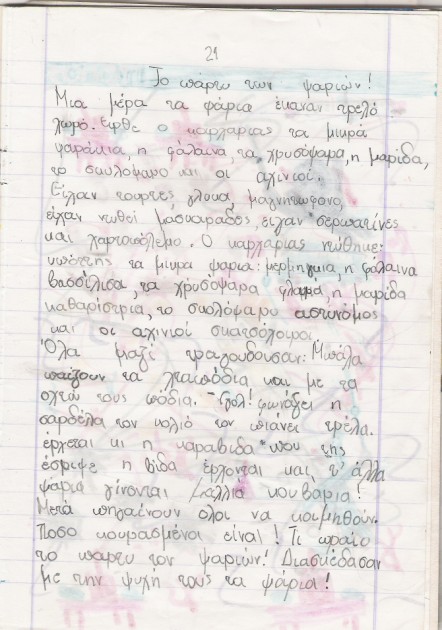 21
Το πάρτυ των ψαριών!
Μια μέρα τα ψάρια έκαναν τρελό
χωμό. Ειρθε ο καρχαρίας τα μικρά
ψαράκια, η φάλαινα, τα χρυσόψαρα, η μαρίδα,
το σκυλόψαρο και οι αχινιοί.
Είχαν τουρτες, γλυκα, μαγνητόφωνο,
είχαν ντυθεί μασκαράδες, ειχαν σερπατίνες
και χαρταπόλεμο. Ο καρχαρίας ντύθηκε:
τα μικρα ψαρια: μερμιγκια, η φάλαινα
βασσίλισα, τα χρυσόψαρα η μαρίδα
καθαρίστρια, το σκυλόψαρο αστυνόμος
και οι αχινιοί σκατσόχοιροι
Όλα μαζί τραγουδουσαν: Μπάλα
παίζουν τα χταπόδια και με τα
οχτώ τους πόδια. -Γκολ! φωνάζει η
σαρδέλα τον κολιό τον πιάνει τρέλα.
έρχεται κι η καραβιδα που της
έστριψε η βίδα έρχονται και τ' άλλα
ψαρια γίνονται μαλλια κουβαρια!
Μετά πηγαίνουν ολοι να κοιμηθούν.
Ποσο κουρασμένα είναι! Τι ωραίο
το παρτυ τον ψαριών! Διασκέδασαν
με την ψυχή τους τα ψάρια!